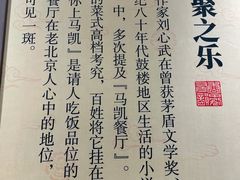 聚之乐
作家刘心武在曾获茅盾文学奖，
纪八十年代鼓楼地区生活的小说
中，多次提及『马凯餐厅』。
的菜式高档考究，百姓将它挂在
上马凯』是请人吃饭品位的
餐厅在老北京人心中的地位，
可见一斑。